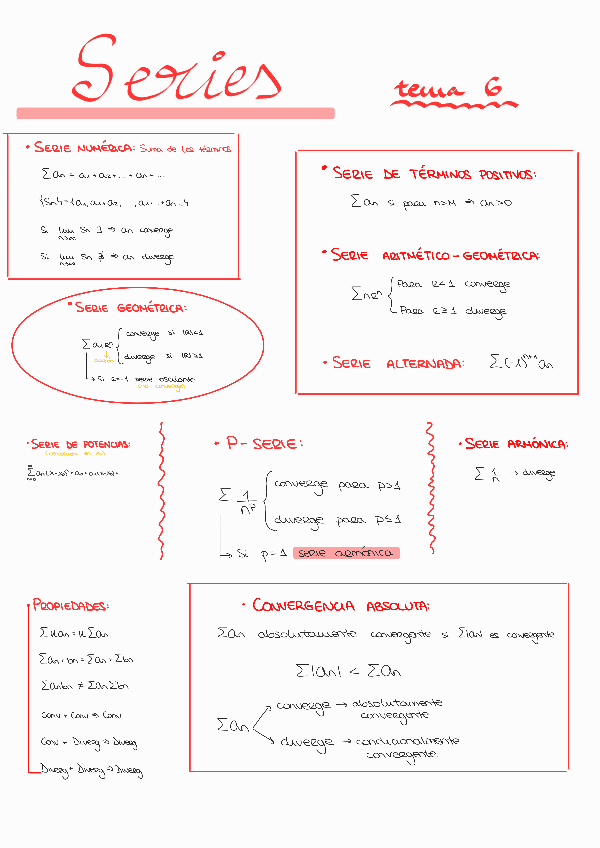 Series
tema 6
• SERIE NUMÉRICA: Suma de los términos
∑an = a1 + a2 + ... + an + ...
{Sn} = {a1, a1+a2, ..., a1+...+an...}
Si lim Sn ∃ ⇒ an converge
n→∞
Si lim Sn ∄ ⇒ an diverge
n→∞
• SERIE GEOMÉTRICA:
∑a1R^n { converge si |R|<1
diverge si |R|≥1
→ Si R=-1 serie oscilante
(no converge)
• SERIE DE TÉRMINOS POSITIVOS:
∑an si para n>N ⇒ an>0
• SERIE ARITMÉTICO-GEOMÉTRICA:
∑nR^n { Para R<1 converge
Para R≥1 diverge
• SERIE ALTERNADA: ∑(-1)^(n+1) an
• SERIE DE POTENCIAS:
• P-SERIE:
∑ 1/n^p { converge para p>1
diverge para p≤1
→ Si p=1 serie armónica
• SERIE ARMÓNICA:
∑ 1/n → diverge
• PROPIEDADES:
∑Kan = K∑an
∑an+bn = ∑an+∑bn
∑anbn ≠ ∑an∑bn
Conv + Conv ⇒ Conv
Conv + Diverg ⇒ Diverg
Diverg + Diverg ⇒ Diverg
• CONVERGENCIA ABSOLUTA:
∑an absolutamente convergente si ∑|an| es convergente
∑|an| < ∑an
∑an
converge → absolutamente
convergente
diverge → condicionalmente
convergente